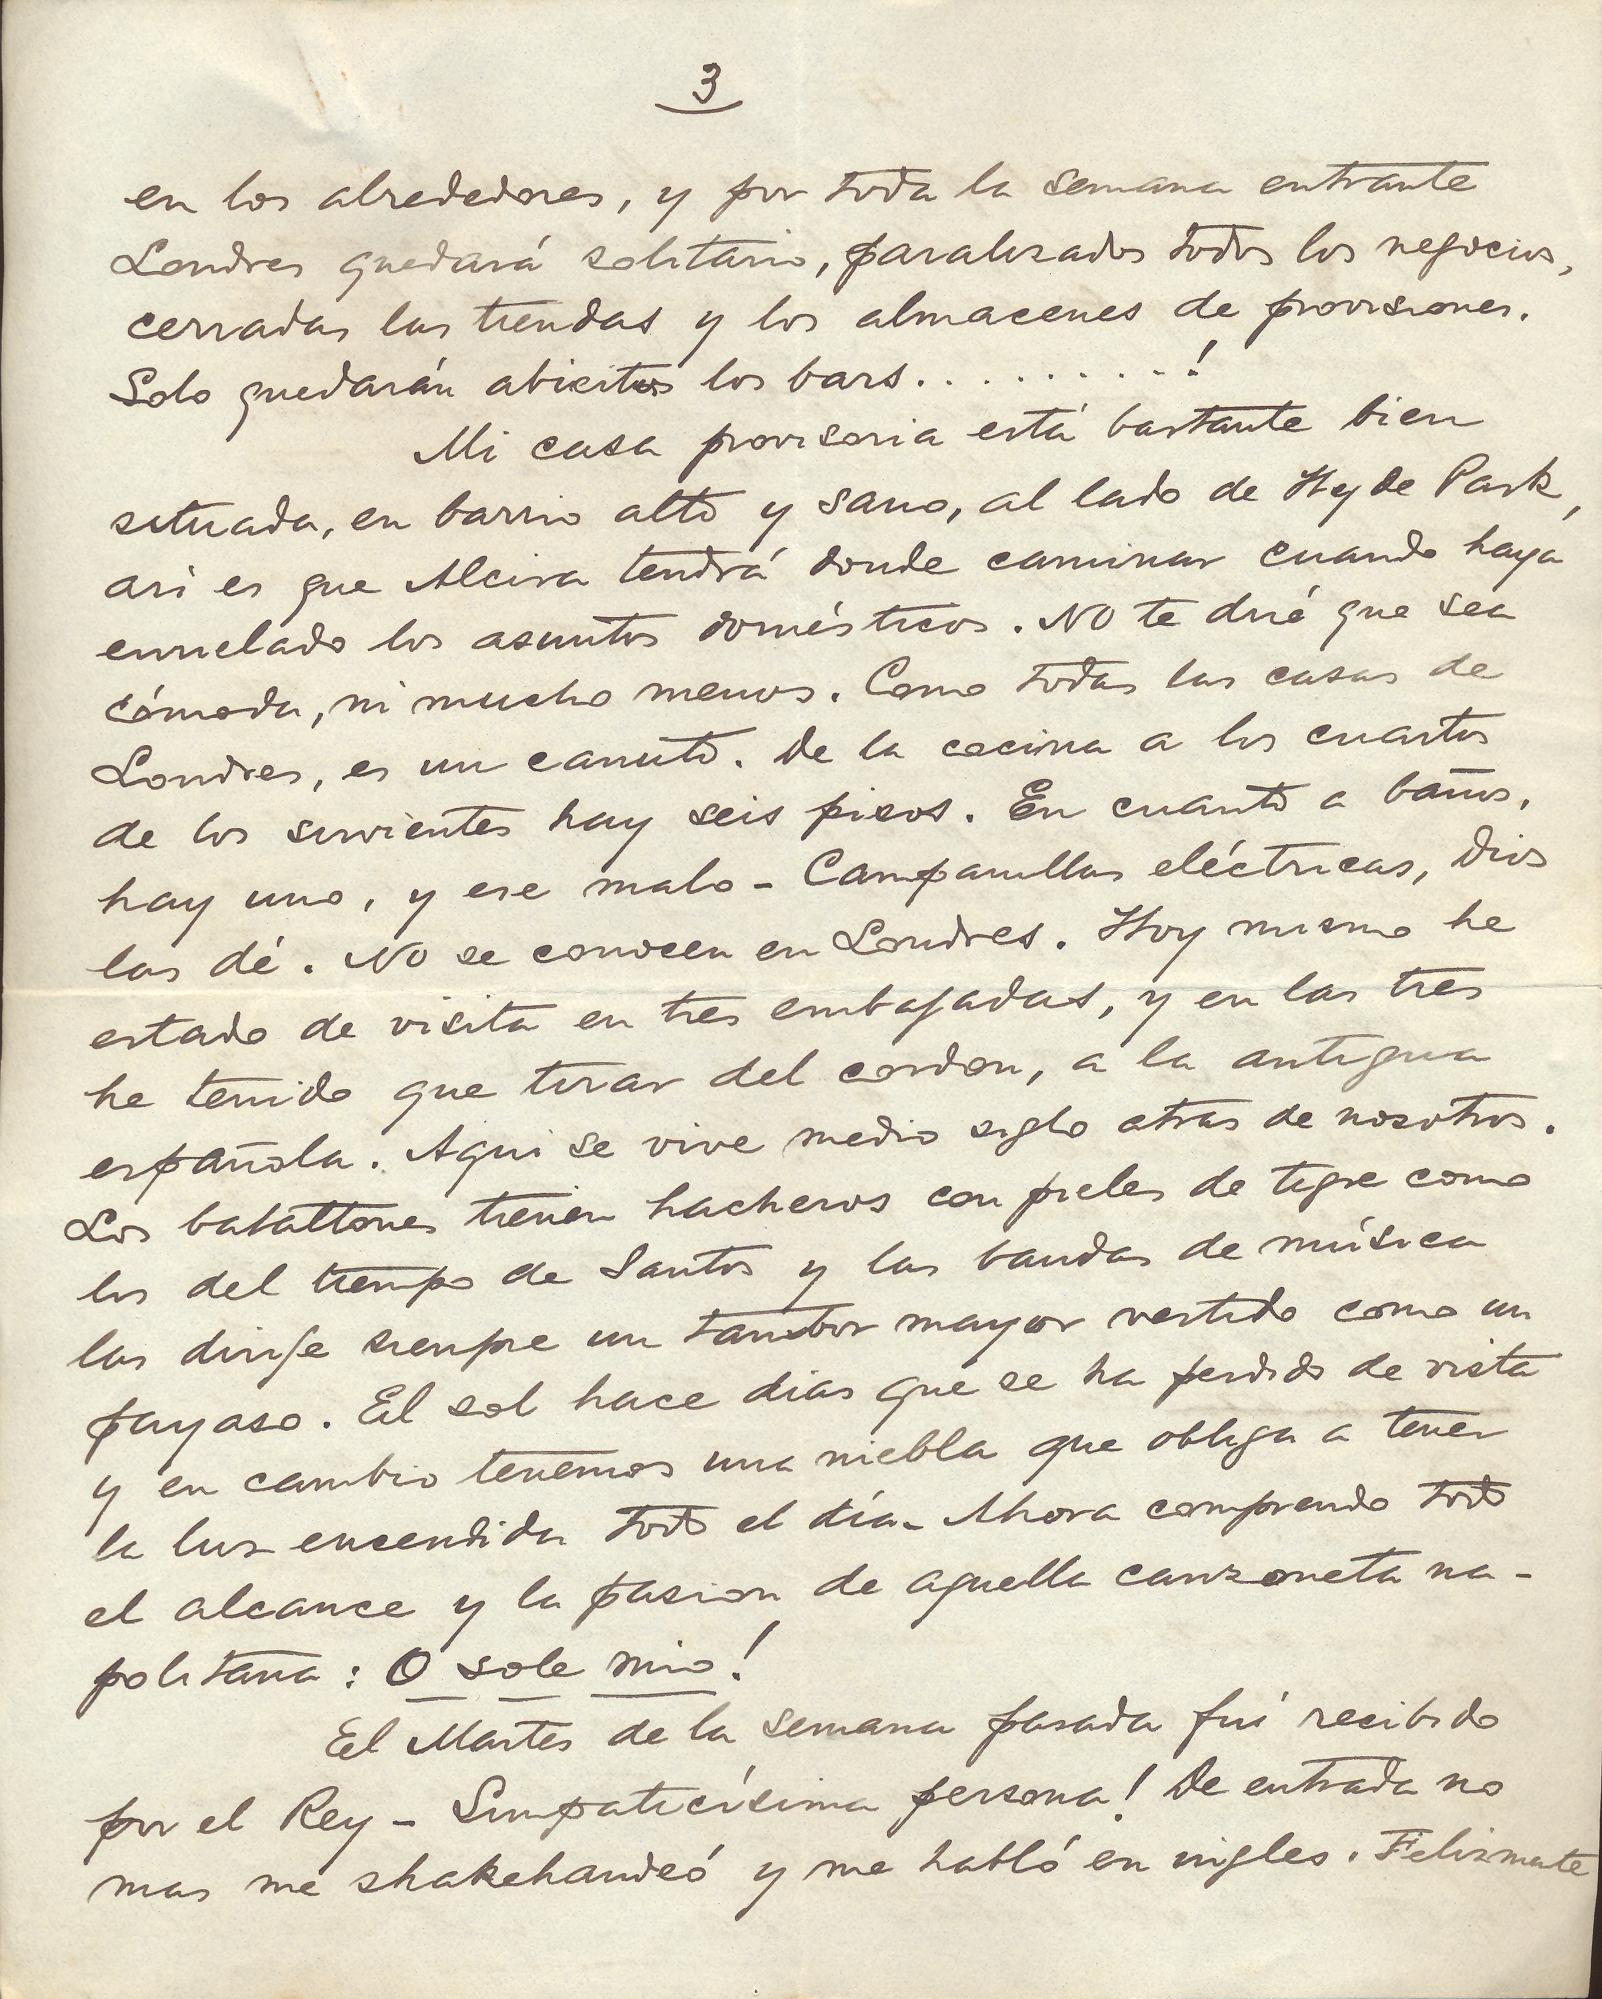 3
en los alrededores, y por toda la semana entrante
Londres quedará solitario, paralizados todos los negocios,
cerradas las tiendas y los almacenes de provisiones.
Solo quedarán abiertos los bars. . . . . . . . . !
Mi casa provisoria está bastante bien
situada, en barrio alto y sano, al lado de Hyde Park,
asi es que Alcira tendrá donde caminar cuando haya
enrielado los asuntos domésticos. No te diré que sea
cómoda, ni mucho menos. Como todas las casas de
Londres, es un canuto. De la cocina a los cuartos
de los sirvientes hay seis pisos. En cuanto a baños,
hay uno, y ese malo - Campanillas eléctricas, Dios
las dé. No se conocen en Londres. Hoy mismo he
estado de visita en tres embajadas, y en las tres
he tenido que tirar del cordon, a la antigua
española. Aqui se vive medio siglo atras de nosotros.
Los batallones tienen hacheros con pieles de tigre como
los del tiempo de Santos y las bandas de música
las dirije siempre un tambor mayor vestido como un
payaso. El sol hace dias que se ha perdido de vista
y en cambio tenemos una niebla que obliga a tener
la luz encendida todo el día - Ahora comprendo todo
el alcance y la pasion de aquella canzoneta na-
politana: O sole mio!
El Martes de la semana pasada fuí recibido
por el Rey - Simpaticísima persona! De entrada no
mas me shakehandeó y me habló en ingles. Felizmente